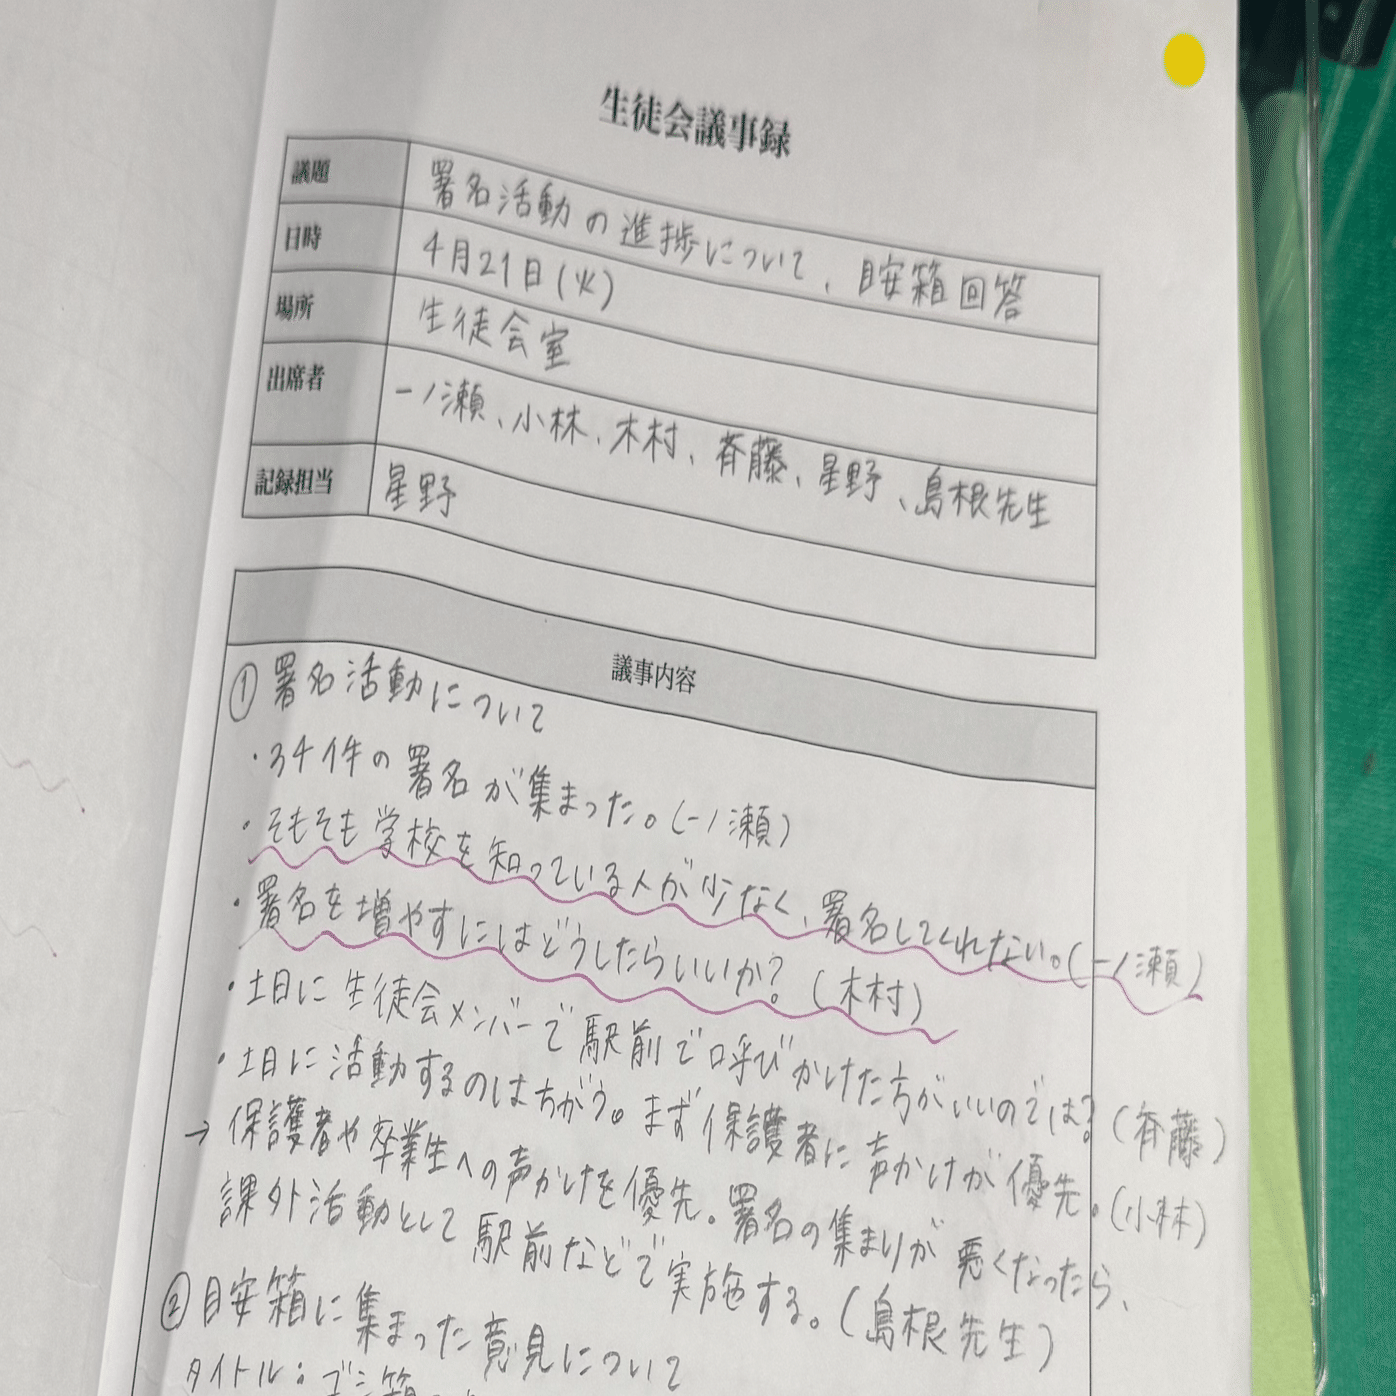 生徒会議事録
議題 署名活動の進捗について、目安箱回答
日時 4月21日(火)
場所 生徒会室
出席者 一ノ瀬、小林、木村、斉藤、星野、島根先生
記録担当 星野
議事内容
① 署名活動について
・34件の署名が集まった。(一ノ瀬)
・そもそも学校を知っている人が少なく、署名してくれない。(一ノ瀬)
・署名を増やすにはどうしたらいいか?(木村)
・土日に生徒会メンバーで駅前で呼びかけた方がいいのでは?(斉藤)
・土日に活動するのはちがう。まず保護者に声かけが優先。(小林)
→ 保護者や卒業生への声かけを優先。署名の集まりが悪くなったら、
課外活動として駅前などで実施する。(島根先生)
② 目安箱に集まった意見について
タイトル:ゴミ箱